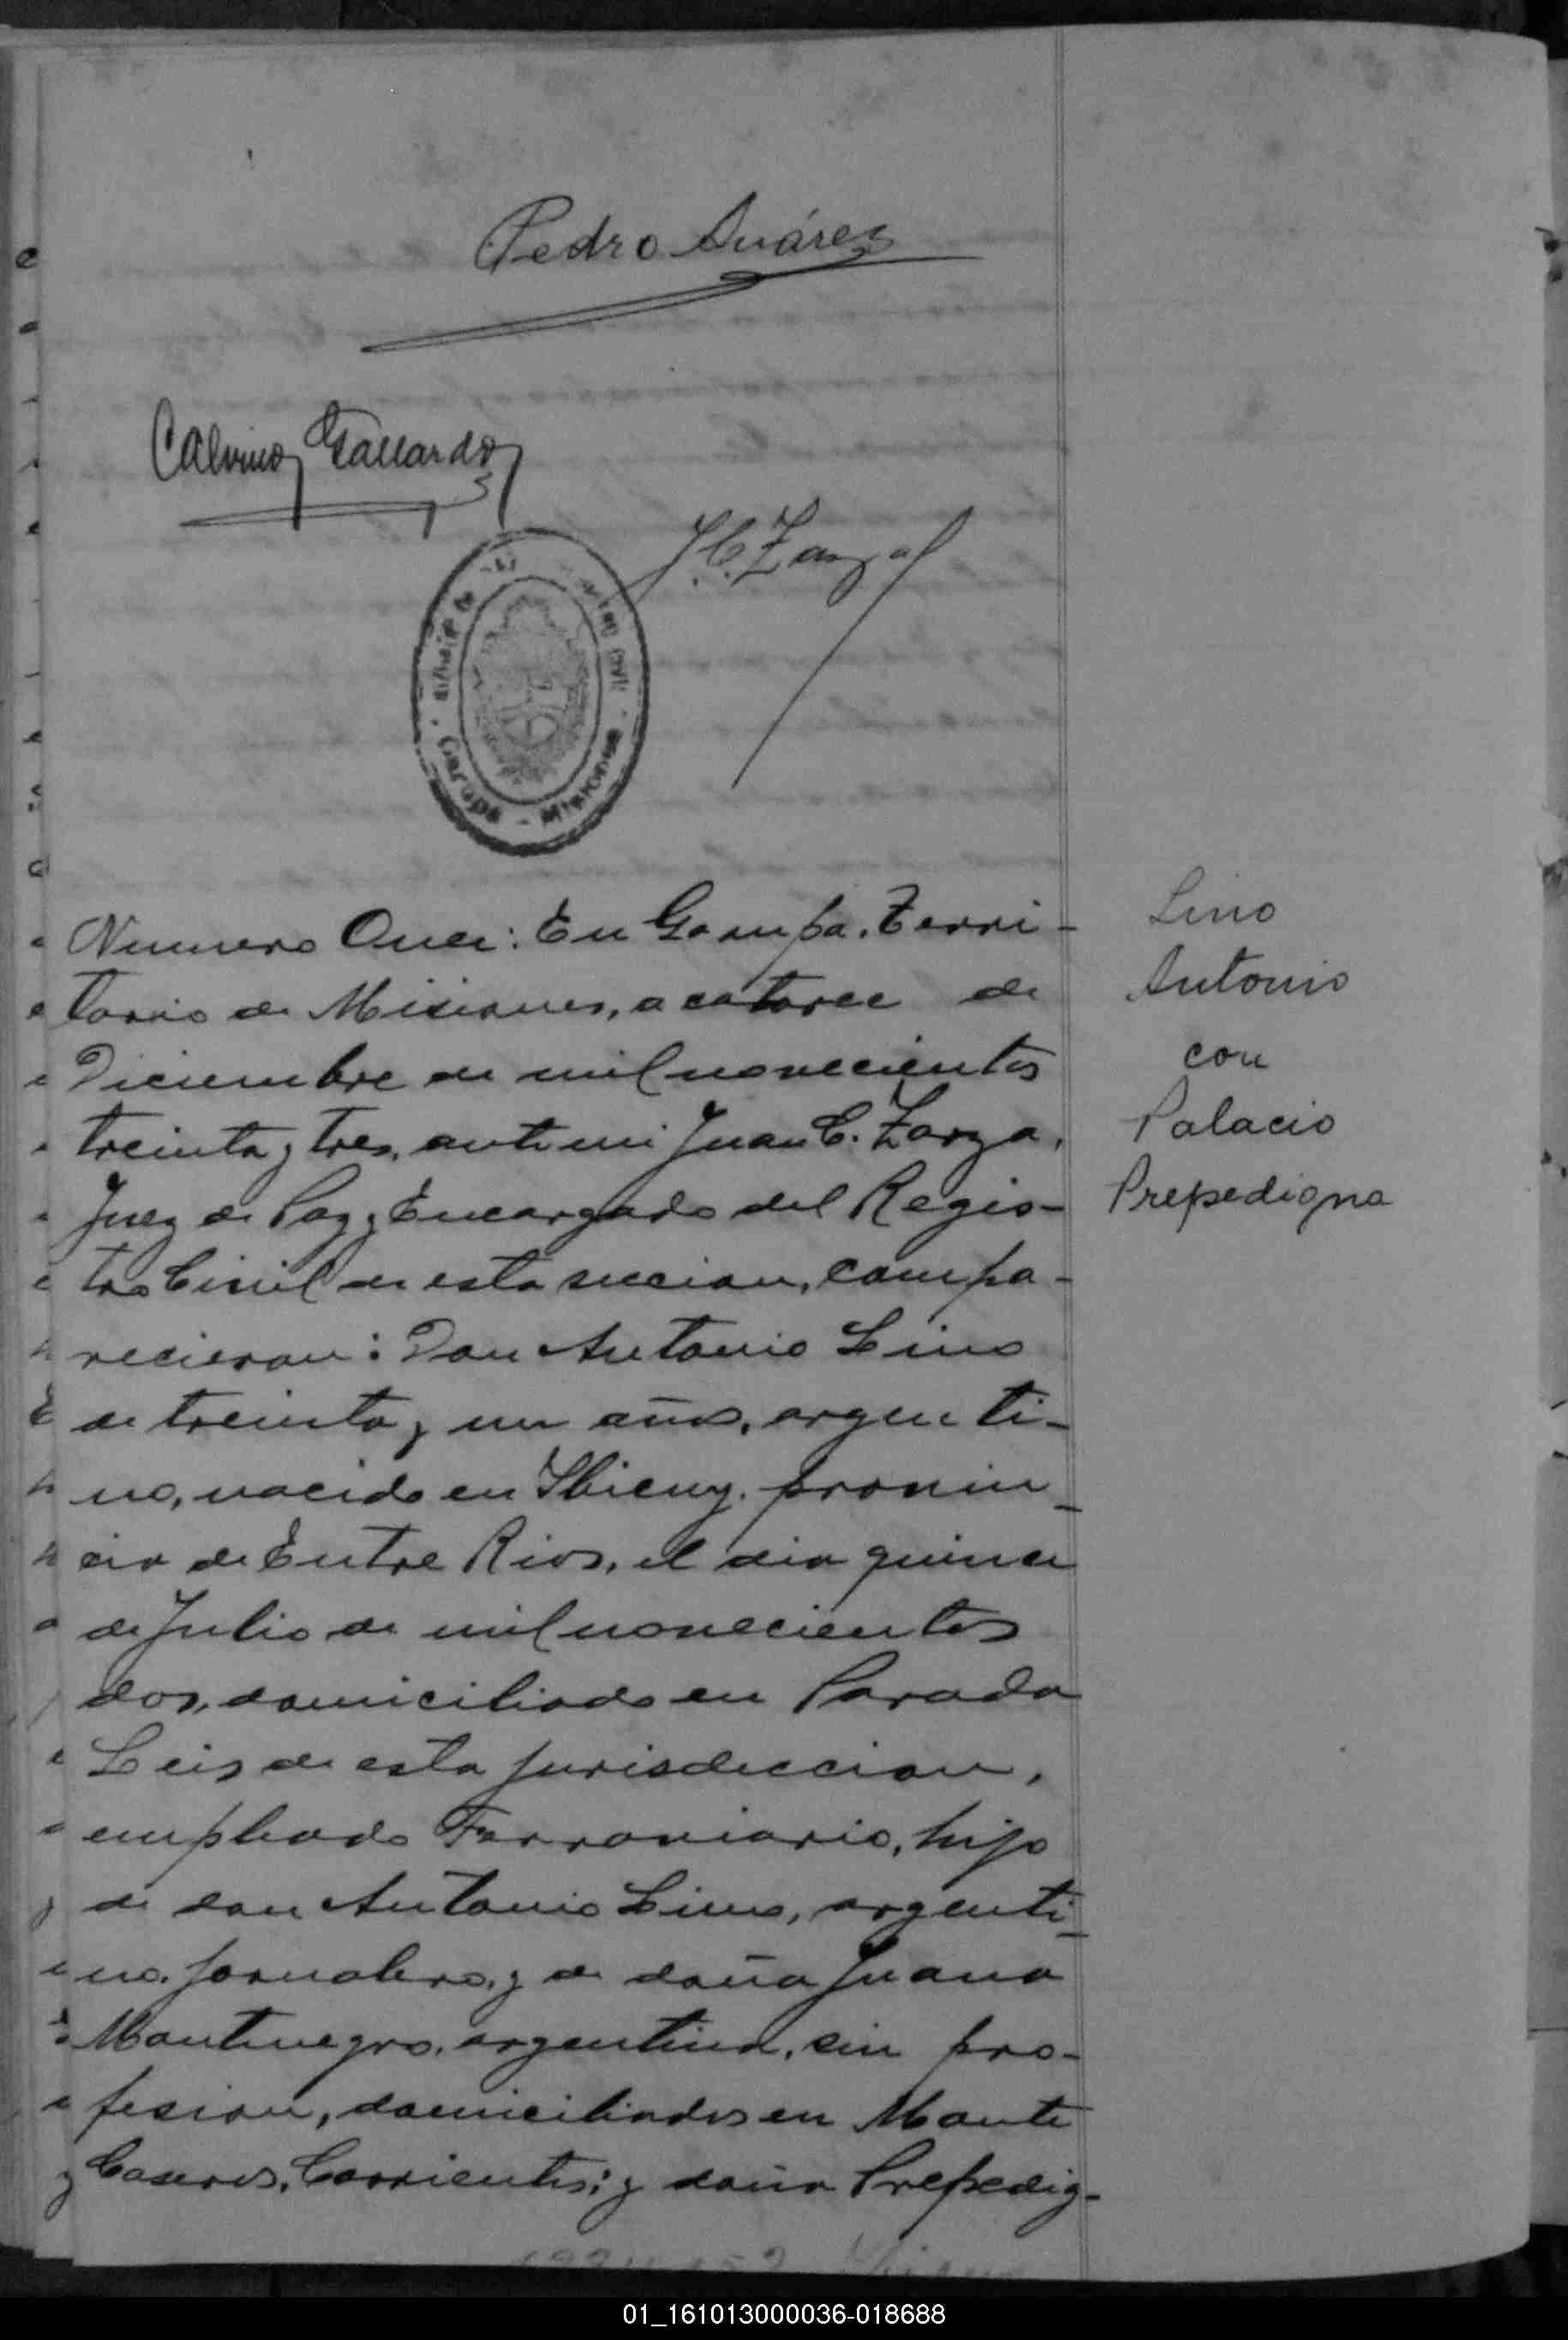 Pedro Suárez
Calvino Gallardo
J.C. Zarza
Garupá - Misiones
Numero Once: En Garupa, Terri-
torio de Misiones, a catorce de
Diciembre de mil novecientos
treinta y tres, ante mi Juan C. Zarza,
Juez de Paz y Encargado del Regis-
tro Civil de esta seccion, compa-
recieron: Don Antonio Lino
de treinta y un años, argenti-
no, nacido en Ibicuy, provin-
cia de Entre Rios, el dia quince
de Julio de mil novecientos
dos, domiciliado en Parada
Leis de esta jurisdiccion,
empleado Ferroviario, hijo
de don Antonio Lino, argenti-
no, jornalero, y de doña Juana
Montenegro, argentina, sin pro-
fesion, domiciliados en Monte
Caseros, Corrientes; y doña Prepedig-
Lino
Antonio
con
Palacio
Prepedigna
01_161013000036-018688